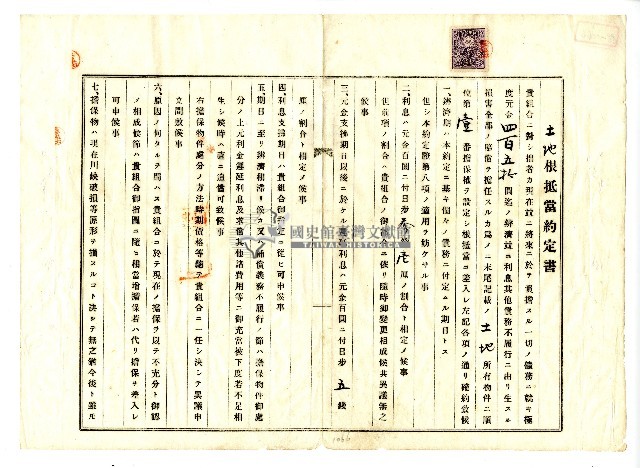 土地根抵當約定書
貴組合ニ對シ拙者カ現在並ニ將來ニ於テ負擔スル一切ノ債務ニ就キ極
度元金四百五拾圓迄ノ辨濟並ニ利息其他義務不履行ニ由リ生スル
損害全部ノ賠償ヲ擔任スルカ爲メニ末尾記載ノ土地所有物件ニ順
位第壹番擔保權ヲ設定シ根抵當ニ差入レ左記各項ノ通リ確約致候
一、辨濟期ハ本約定ニ基キ個々ノ債務ニ付定ムル期日トス
但シ本約定證第八項ノ適用ヲ妨ケサル事
二、利息ハ元金百圓ニ付日歩 厘ノ割合ト相定メ候事
但前項ノ割合ハ貴組合ノ御都合ニ依リ隨時御變更相成候共異議無之
候事
三、元金支拂期日以後ニ於ケル遲延利息ハ元金百圓ニ付日歩五錢
厘ノ割合ト相定メ候事
四、利息支拂期日ハ貴組合御指定ニ從ヒ可申候事
五、期日ニ至リ辨濟相滯リ候カ又ハ補償義務不履行ノ節ハ擔保物件御處
分ノ上元利金遲延利息及求償其他諸費用等ニ御充當被下度若不足相
生シ候時ハ直ニ追償可致候事
右擔保物件處分ノ方法時期價格等總テ貴組合ニ一任シ決シテ異議申
立間敷候事
六、原因ノ何タルヲ問ハス貴組合ニ於テ現在ノ擔保ヲ以テ不充分ト御認
メ相成候節ハ貴組合御指圖ニ隨ヒ相當增擔保若ハ代リ擔保ヲ差入レ
可申候事
七、擔保物ハ現在川缺破損等原形ヲ損スルコト決シテ無之萬今後ト雖モ
國史館臺灣文獻館
TAIWAN HISTORICA